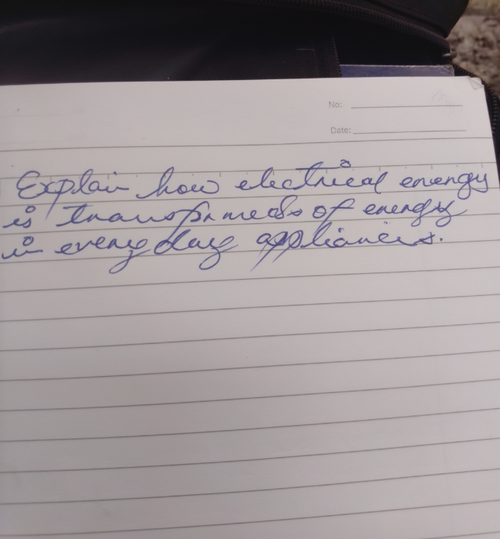 No:
Date:
Explain how electrical energy
is transformeds of energy
in every day appliances.